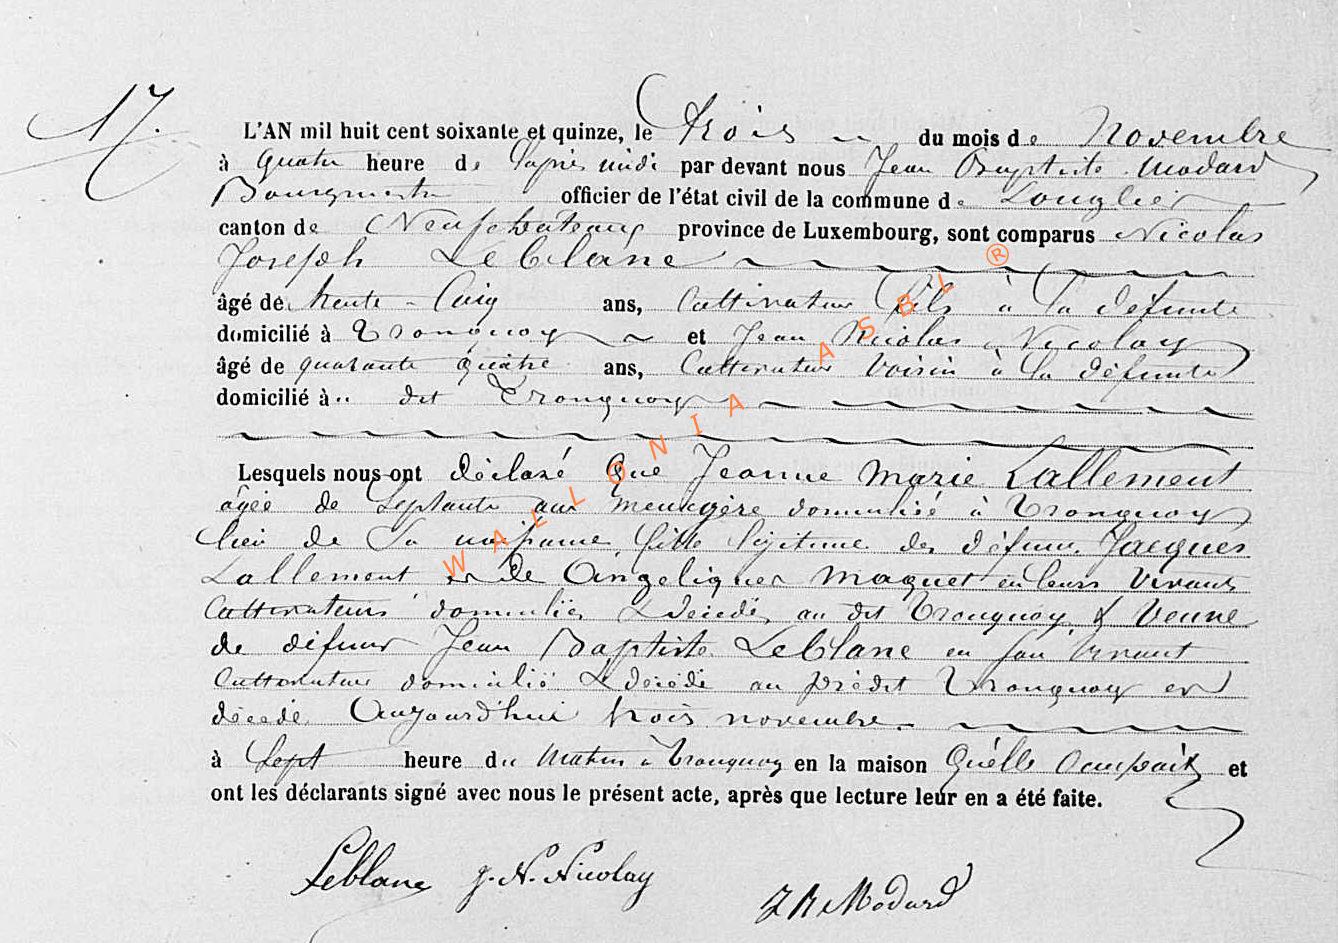 17.
L'AN mil huit cent soixante et quinze, le trois du mois de Novembre
à quatre heure de l'après midi par devant nous Jean Baptiste Modard
Bourgmestre officier de l'état civil de la commune de Longlier
canton de Neufchateau province de Luxembourg, sont comparus Nicolas
Joseph LeBlanc
âgé de trente-Cinq ans, Cultivateur fils à la défunte
domicilié à Tronquoy et Jean Nicolas Nicolay
âgé de quarante quatre ans, Cultivateur Voisin à la défunte
domicilié à dit Tronquoy
Lesquels nous ont déclaré que Jeanne Marie Lallement
âgée de Septante ans menagère domiciliée à Tronquoy
lieu de Sa naissance, fille légitime des défunts Jacques
Lallement et de Angelique Maquet en leurs vivants
Cultivateurs domiciliés & décédés au dit Tronquoy, & Veuve
de défunt Jean Baptiste LeBlanc en son vivant
Cultivateur domicilié & décédé au prédit Tronquoy est
décédé Aujourd'hui trois novembre
à Sept heure du Matin à Tronquoy en la maison Quélle Occupait et
ont les déclarants signé avec nous le présent acte, après que lecture leur en a été faite.
Leblanc J. N. Nicolay
J B Modard
WALLONIA ASBL ®